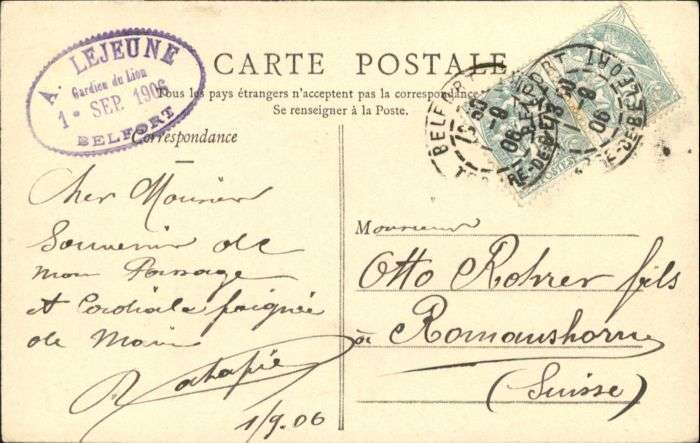 A. LEJEUNE
Gardien du Lion
1 SEP. 1906
BELFORT
CARTE POSTALE
Tous les pays étrangers n'acceptent pas la correspondance
Se renseigner à la Poste.
Correspondance
BELFORT
BELFORT
Cher Monsieur
Souvenir de
mon Passage
et Cordiale poignée
de Main
1/9.06
Monsieur
Otto Rohrer fils
à Romanshorn
(Suisse)